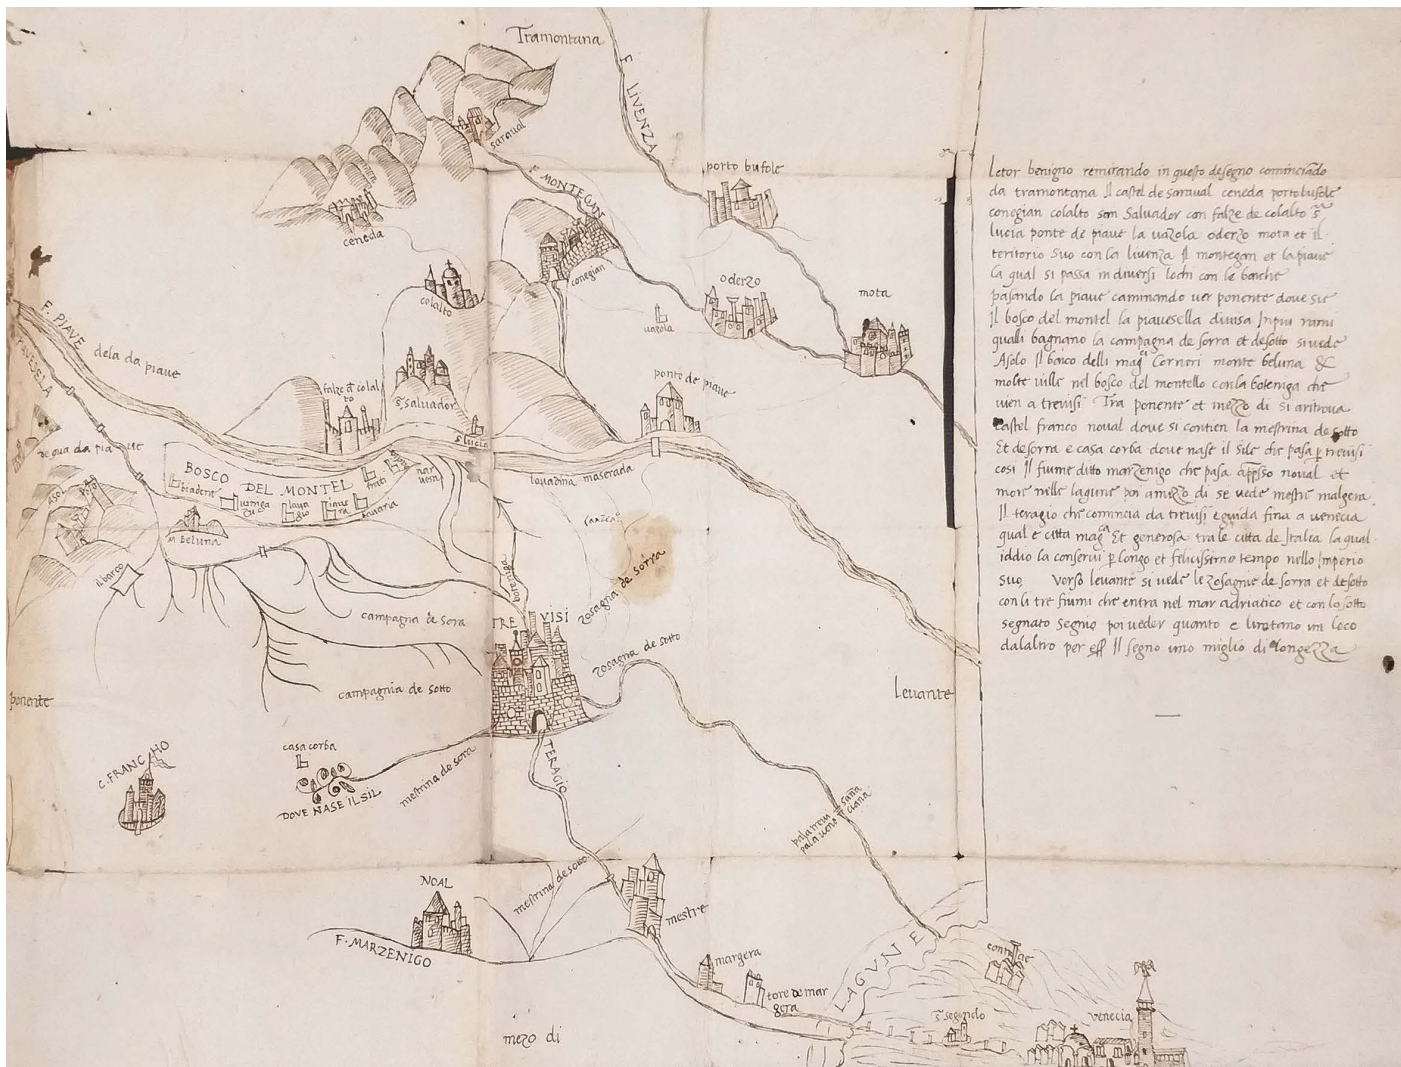 Tramontana
F. LIVENZA
saraual
F MONTEGAN
porto bufole
ceneda
conegian
colalto
oderzo
mota
uazola
F. PIAVE
dela da piave
PIAVESELA
falze d colal
to
s. Saluador
ponte de piave
s. lucia
de qua da piaue
BOSCO DEL MONTEL
biadene
uolpago
frati
nar
uesa
louadina maserada
asol
M. Beluna
il barco
boteniga
zosagna de sorra
campagna de sora
TRE VISI
zosagna de sotto
campagnia de sotto
ponente
Leuante
C. FRANCHO
casa corba
DOVE NASE IL SIL
mestrina de sorra
TERAGIO
NOAL
mestrina de sotto
mestre
F. MARZENIGO
margera
tore de mar
gera
LAGVNE
s. segondo
venecia
mezo di
Letor benigno remirando in questo desegno cominciado
da tramontana Il castel de saraual ceneda portobufole
conegian colalto son Saluador con falze de colalto s.
lucia ponte de piaue la uazola oderzo mota et il
teritorio suo con la liuenza Il montegan et la piaue
la qual si passa in diuersi lochi con le barche
passando la piaue caminando uer ponente doue sie
Il bosco del montel la piauesella diuisa In piu rami
qualli bagnano la campagna de sorra et desotto si uede
Asolo Il barco delli mag.ci Corneri monte beluna &
molte uille nel bosco del montello con la boteniga che
uien a treuisi Tra ponente et mezzo di si aritroua
castel franco noual doue si contien la mestrina de sotto
Et desorra e casa corba doue nase il sile che pasa p treuisi
cosi Il fiume ditto marzenigo che pasa apsso noual et
more nelle lagune poi a mezo di se uede mestre malgera
Il teragio che comincia da treuisi e guida fina a uenecia
qual e citta mag.ca Et generosa tra le citta de Italia la qual
iddio la conserui p longo et felicissimo tempo nello Imperio
suo Verso leuante si uede le zosagnie de sorra et desotto
con li tre fiumi che entra nel mar adriatico et con lo sotto
segnato segnio poi ueder quanto e lontano un loco
dalaltro per esser Il segno uno miglio di longezza